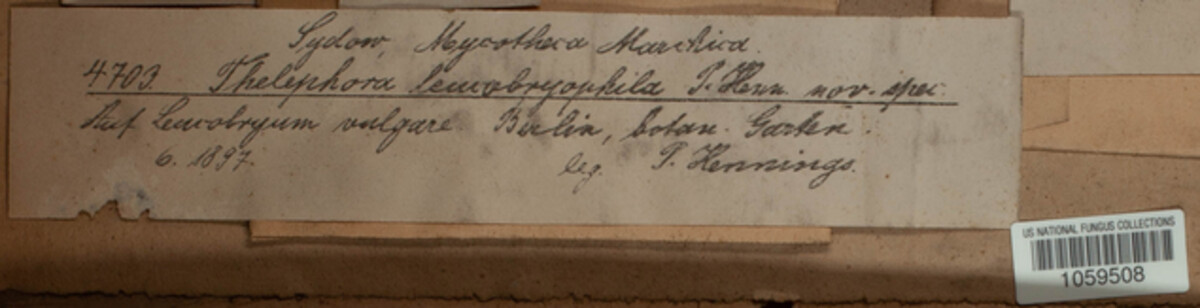 Sydow, Mycotheca Marchica.
4703. Thelephora leucobryophila P. Henn. nov. spec.
Auf Leucobryum vulgare. Berlin, botan. Garten.
6. 1897. leg. P. Hennings.
US NATIONAL FUNGUS COLLECTIONS
1059508